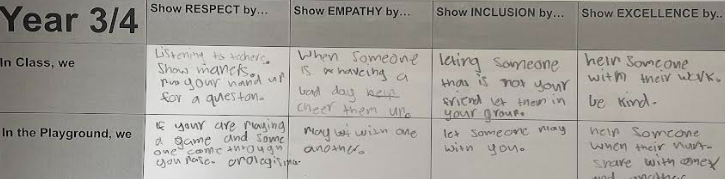 Year 3/4
Show RESPECT by...
Show EMPATHY by...
Show INCLUSION by...
Show EXCELLENCE by..
In Class, we
Listening to
Show maners.
your hand up
for a queston.
When Someone
is having a
bad day
cheer them up.
leting Someone
that is not your
friend let them in
your group.
help Someone
with their work.
be kind.
In the Playground, we
if your are playing
a game and some
one come through
Play with one
another.
let someone play
with you.
help Someone
when their hurt.
share with
and another